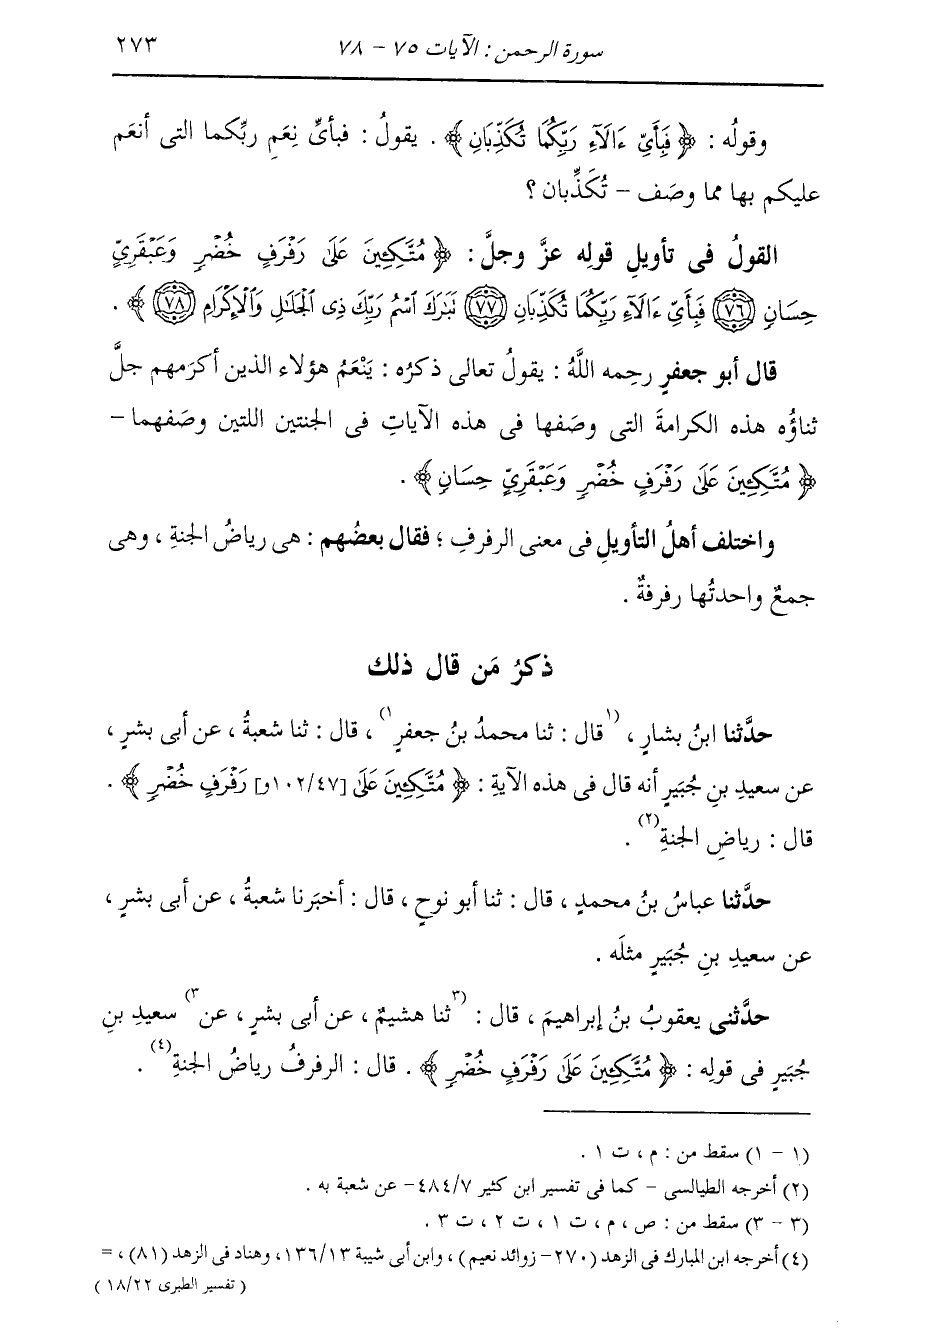 سورة الرحمن : الآيات ٧٥ - ٧٨
٢٧٣
وقولُه : ﴿ فَبِأَيِّ ءَالَآءِ رَبِّكُمَا تُكَذِّبَانِ ﴾ . يقولُ : فبأىِّ نِعَمِ ربِّكما التى أنعَم
عليكم بها مما وصَف - تُكَذِّبان ؟
القولُ فى تأويلِ قولِه عزَّ وجلَّ : ﴿ مُتَّكِـِٔينَ عَلَىٰ رَفْرَفٍ خُضْرٍ وَعَبْقَرِيٍّ
حِسَانٍ ﴿٧٦﴾ فَبِأَيِّ ءَالَآءِ رَبِّكُمَا تُكَذِّبَانِ ﴿٧٧﴾ تَبَٰرَكَ ٱسْمُ رَبِّكَ ذِى ٱلْجَلَٰلِ وَٱلْإِكْرَامِ ﴿٧٨﴾ ﴾ .
قال أبو جعفرٍ رحِمه اللَّهُ : يقولُ تعالى ذكرُه : يَنْعَمُ هؤلاء الذين أكرَمهم جلَّ
ثناؤُه هذه الكرامةَ التى وصَفها فى هذه الآياتِ فى الجنتين اللتين وصَفهما -
﴿ مُتَّكِـِٔينَ عَلَىٰ رَفْرَفٍ خُضْرٍ وَعَبْقَرِيٍّ حِسَانٍ ﴾ .
واختلف أهلُ التأويلِ فى معنى الرفرفِ ؛ فقال بعضُهم : هى رياضُ الجنةِ ، وهى
جمعٌ واحدتُها رفرفةٌ .
ذكرُ مَن قال ذلك
حدَّثنا ابنُ بشارٍ ، (١قال : ثنا محمدُ بنُ جعفرٍ١) ، قال : ثنا شعبةُ ، عن أبى بشرٍ ،
عن سعيدِ بنِ جُبَيرٍ أنه قال فى هذه الآيةِ : ﴿ مُتَّكِـِٔينَ عَلَىٰ [١٠٢/٤٧و] رَفْرَفٍ خُضْرٍ ﴾ .
قال : رياضِ الجنةِ(٢) .
حدَّثنا عباسُ بنُ محمدٍ ، قال : ثنا أبو نوحٍ ، قال : أخبَرنا شعبةُ ، عن أبى بشرٍ ،
عن سعيدِ بنِ جُبَيرٍ مثلَه .
حدَّثنى يعقوبُ بنُ إبراهيمَ ، قال : (٣ثنا هشيمٌ ، عن أبى بشرٍ ، عن٣) سعيدِ بنِ
جُبَيرٍ فى قولِه : ﴿ مُتَّكِـِٔينَ عَلَىٰ رَفْرَفٍ خُضْرٍ ﴾ . قال : الرفرفُ رياضُ الجنةِ(٤) .
(١ - ١) سقط من : م ، ت ١ .
(٢) أخرجه الطيالسى - كما فى تفسير ابن كثير ٤٨٤/٧ - عن شعبة به .
(٣ - ٣) سقط من : ص ، م ، ت ١ ، ت ٢ ، ت ٣ .
(٤) أخرجه ابن المبارك فى الزهد (٢٧٠ - زوائد نعيم) ، وابن أبى شيبة ١٣٦/١٣، وهناد فى الزهد (٨١) ، =
( تفسير الطبرى ١٨/٢٢ )